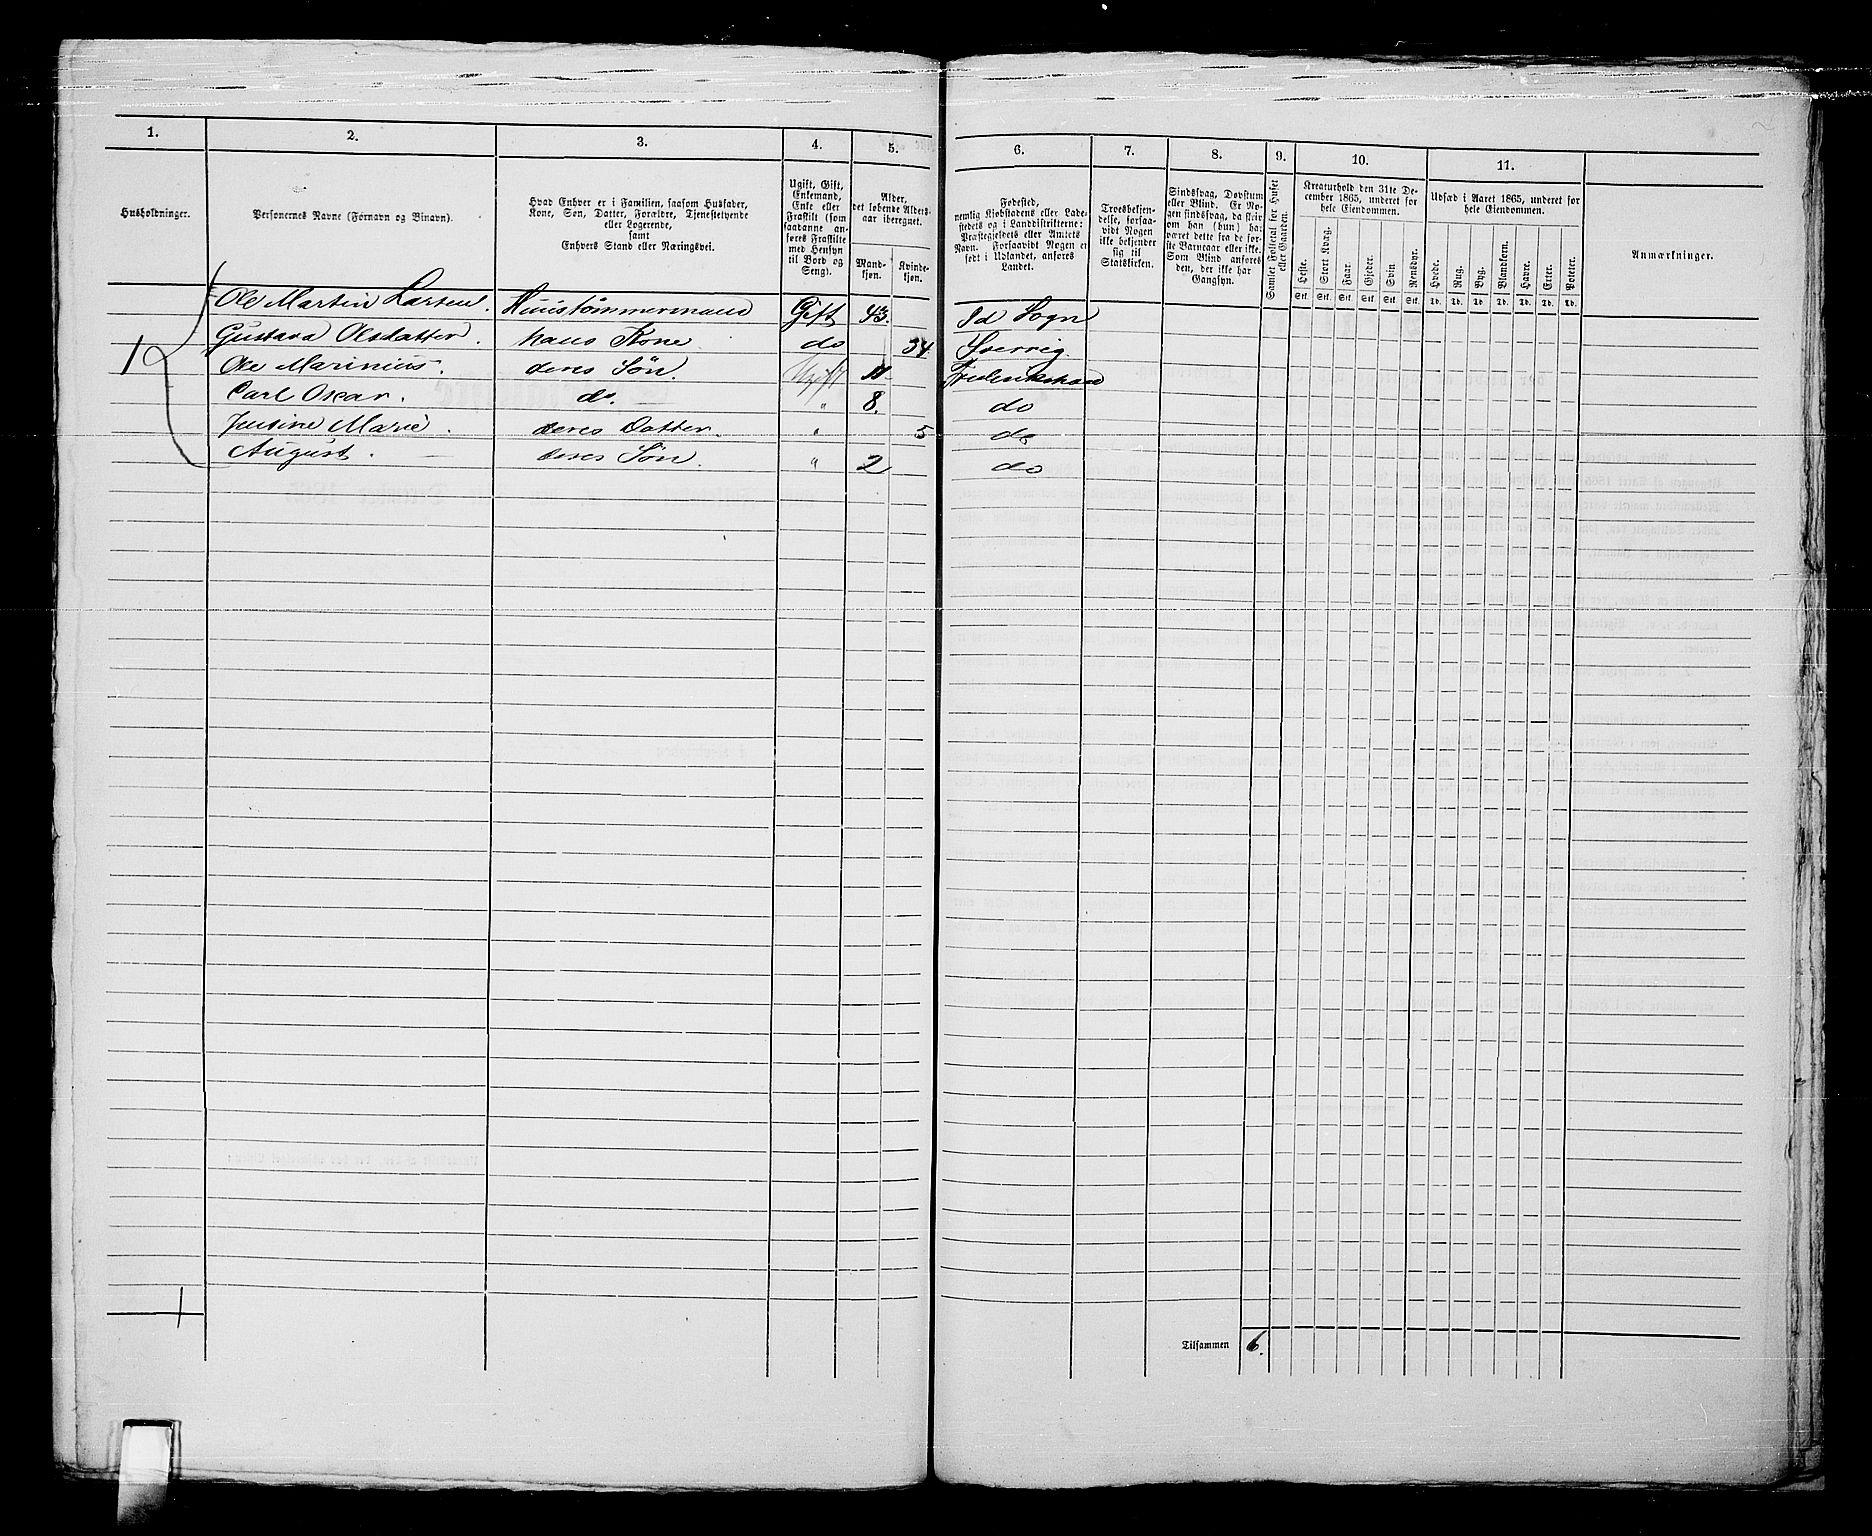 1. 2. 3. 4. 5. 6. 7. 8. 9. 10. 11.
Husholdninger.
Personernes Navne (Fornavn og Binavn).
Hvad Enhver er i Familien, saasom Husfader,
Kone, Søn, Datter, Forældre, Tjenestetyende
eller Logerende,
samt
Enhvers Stand eller Næringsvei.
Ugift, Gift,
Enkemand,
Enke eller
Fraskilt (som
saadanne an-
føres Fraskilte
med Hensyn
til Bord og
Seng).
Alder,
det løbende Alders-
aar iberegnet.
Mand-
kjøn.
Kvinde-
kjøn.
Fødested,
nemlig Kjøbstadens eller Lade-
stedets og i Landdistrikterne:
Præstegjeldets eller Amtets
Navn. Forsaavidt Nogen er
født i Udlandet, anføres
Landet.
Troesbekjen-
delse, forsaa-
vidt Nogen
ikke bekjender
sig til
Statskirken.
Sindssvag, Døvstum
eller Blind. Er No-
gen sindssvag, da skrives
om han (hun) har
været dette fra de før-
ste Barneaar eller ikke.
Som Blind anføres
den, der ikke har
Gangsyn.
Samlet Folketal for Huset
eller Gaarden.
Kreaturhold den 31te De-
cember 1865, underet for
hele Eiendommen.
Heste. Stort Kvæg. Faar. Gjeder. Svin Rensdyr.
Stk. Stk. Stk. Stk. Stk. Stk.
Udsæd i Aaret 1865, underet for
hele Eiendommen.
Hvede. Rug. Byg. Blandkorn. Havre. Erter. Poteter.
Td. Td. Td. Td. Td. Td. Td.
Anmærkninger.
Ole Martin Larsen. Huustømmermand Gift 43. Id Sogn
Gustava Olsdatter. hans Kone do 34 Sverrig.
1 Ole Marinius. deres Søn. Ugift 11 Frederikshald
Carl Oscar. do. " 8. do
Justine Marie. deres Datter. " 5 do
August. deres Søn. " 2 do
1
Tilsammen 6.